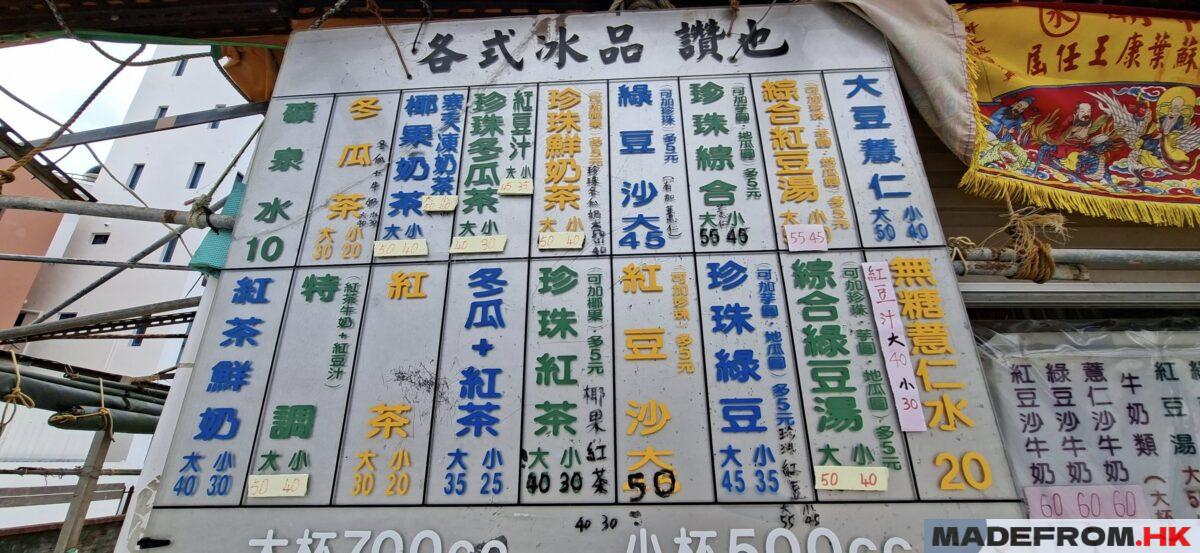 各式冰品 讚也
大豆薏仁
大 小
50 40
綜合紅豆湯
(可加珍珠,芋圓,地瓜圓,多5元)
大 小
55 45
珍珠綜合
(可加芋圓,地瓜圓,多5元)
大 小
55 45
綠豆沙大
45
(可加珍珠,多5元)
珍珠鮮奶茶
大 小
50 40
紅豆汁
大 小
45 35
珍珠冬瓜茶
40 30
寒天凍奶茶
椰果奶茶
50 40
冬瓜茶
大 小
30 20
礦泉水
10
無糖薏仁水
20
紅豆汁 大40 小30
綜合綠豆湯
(可加珍珠,芋圓,地瓜圓,多5元)
大 小
50 40
珍珠綠豆
(可加芋圓,地瓜圓,多5元)
大 小
45 35
珍珠紅豆
大 小
55 45
紅豆沙大
50
(可加珍珠,多5元)
珍珠紅茶
(可加椰果,多5元)
大 小
40 30
椰果紅茶
40 30
冬瓜+紅茶
大 小
35 25
紅茶
大 小
30 20
特調
(紅茶牛奶+紅豆汁)
大 小
50 40
紅茶鮮奶
大 小
40 30
大杯700cc 小杯500cc
蘇葉康王任
牛奶類
薏仁沙牛奶
綠豆沙牛奶
紅豆沙牛奶
60 60 60
MADEFROM.HK